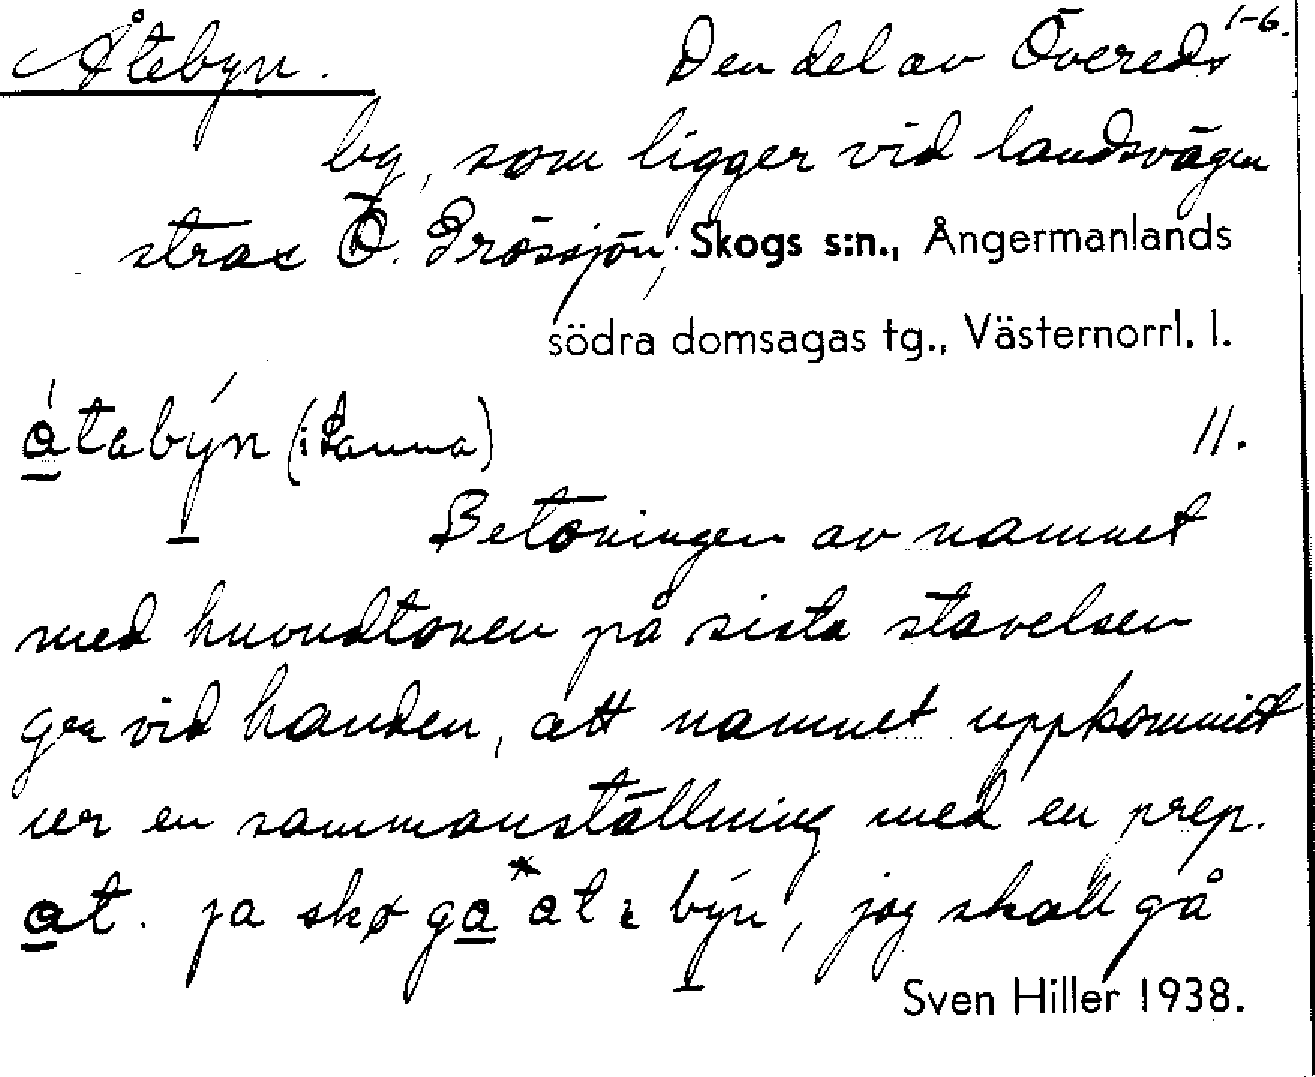 Åtebyn. Den del av Övereds 1-6.
by, som ligger vid landsvägen
strax Ö. Grössjön, Skogs s:n., Ångermanlands
södra domsagas tg., Västernorrl. l.
åtabýn (i Panna) 11.
Betoningen av namnet
med huvudtonen på sista stavelsen
ger vid handen, att namnet uppkommit
ur en sammanställning med en prep.
at. ja skø ga *at býn, jag skall gå
Sven Hiller 1938.